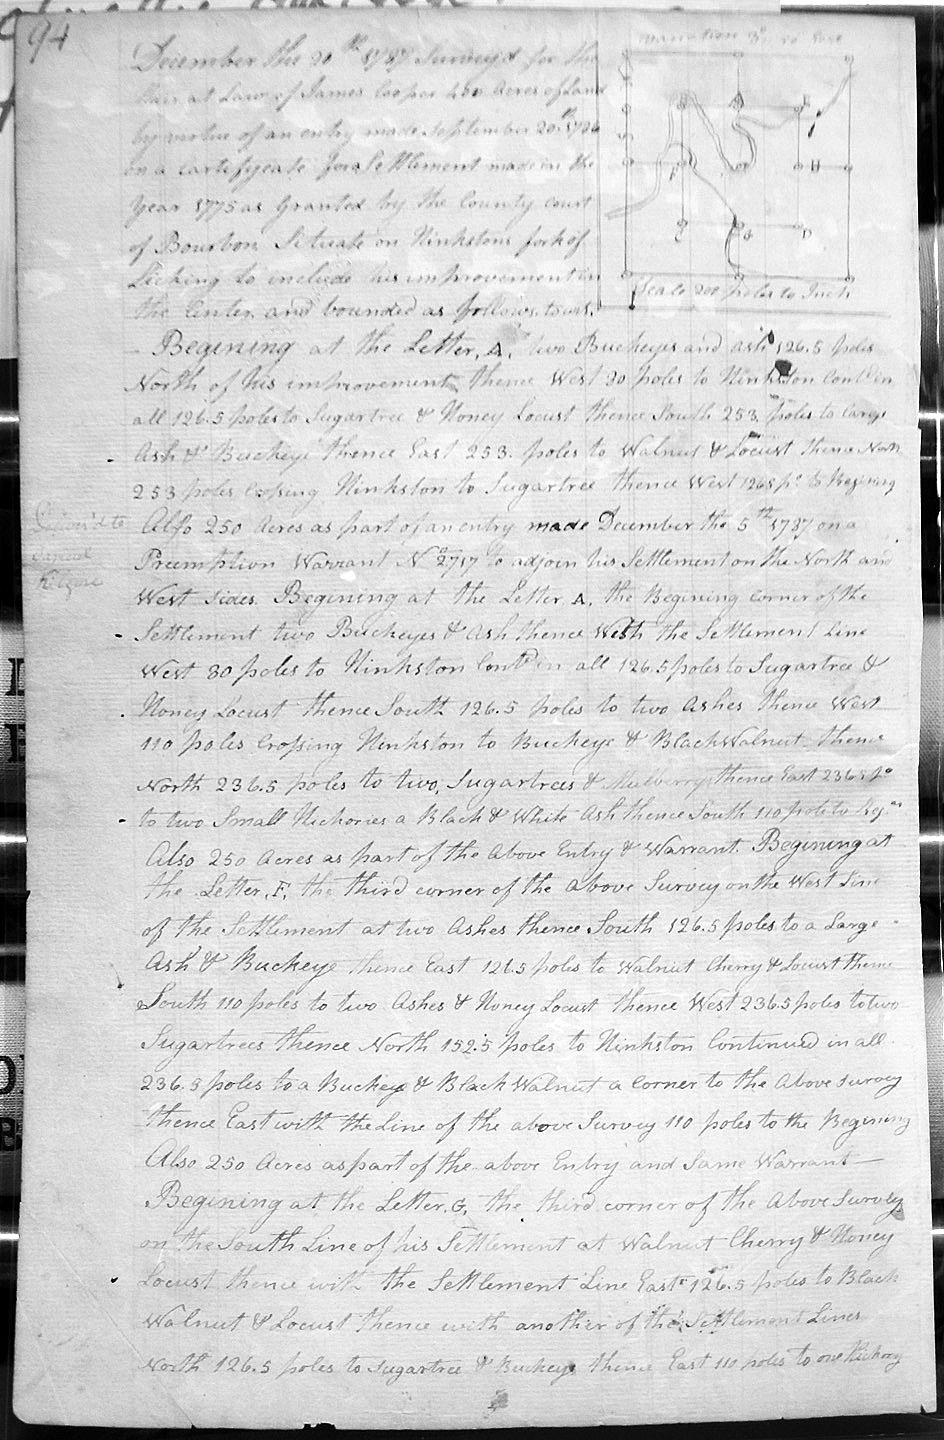 94
December the 20th 1787 Surveyd for the
Heir at Law of James Cooper 400 Acres of Land
by virtue of an entry made September 20th 1786
on a certifycate for a Settlement made in the
Year 1775 as Granted by the County court
of Bourbon Situate on Hinkstons fork of
Licking to include his improvement in
the Center and bounded as follows towit.
Variation 3° East
E
F
H
G
D
Scale 200 poles to Inch
Begining at the Letter, A, two Buckeyes and ash 126.5 poles
North of his improvement thence West 80 poles to Hinkston Contd in
all 126.5 poles to Sugartree & Honey Locust thence South 253 poles to large
Ash & Buckeye thence East 253. poles to Walnut & Locust thence North
253 poles Crossing Hinkston to Sugartree thence West 126.5 po to Begining
Also 250 Acres as part of an entry made December the 5th 1787 on a
Preemption Warrant No 2717 to adjoin his Settlement on the North and
West sides. Begining at the Letter, A, the Begining corner of the
Settlement two Buckeyes & Ash thence With the Settlement Line
West 80 poles to Hinkston Contd in all 126.5 poles to Sugartree &
Honey Locust thence South 126.5 poles to two Ashes thence West
110 poles Crossing Hinkston to Buckeye & Black Walnut thence
North 236.5 poles to two Sugartrees & Mulberry thence East 236.5 po
to two Small Hichories a Black & White Ash thence South 110 pole to Begn
Also 250 Acres as part of the Above Entry & Warrant. Begining at
the Letter, F, the third corner of the above Survey on the West Line
of the Settlement at two Ashes thence South 126.5 poles to a Large
Ash & Buckeye thence East 126.5 poles to Walnut Cherry & Locust thence
South 110 poles to two Ashes & Honey Locust thence West 236.5 poles to two
Sugartrees thence North 152.5 poles to Hinkston Continued in all
236.5 poles to a Buckeye & Black Walnut a Corner to the Above survey
thence East with the Line of the above Survey 110 poles to the Begining
Also 250 Acres as part of the above Entry and Same Warrant
Begining at the Letter, G, the third corner of the Above Survey
on the South Line of his Settlement at Walnut Cherry & Honey
Locust thence with the Settlement Line East 126.5 poles to Black
Walnut & Locust thence with another of the Settlement Lines
North 126.5 poles to Sugartree & Buckeye thence East 110 poles to one Hickory